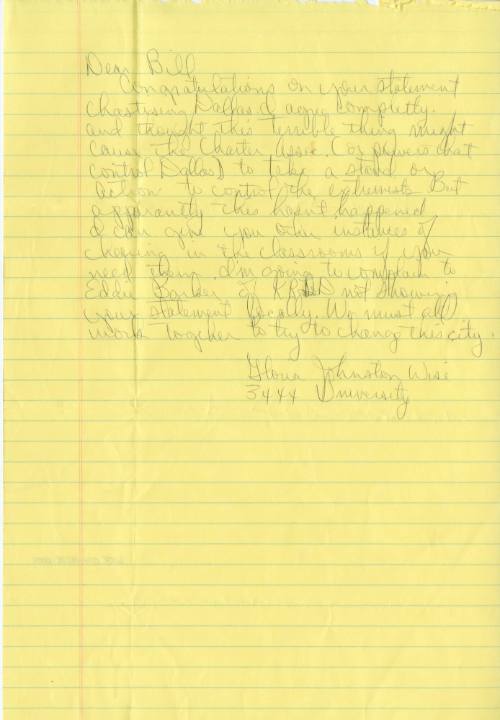 Dear Bill
Congratulations on your statement
chastising Dallas. I agree completly.
and thought this terrible thing might
cause the Charter Assoc. (or powers that
control Dallas) to take a stand or
action to control the extremists. But
apparantly this hasn't happened.
I can give you other instances of
cheering in the classrooms if you
need them. I'm going to complain to
Eddie Barker of KRLD not showing
your statement locally. We must all
work together to try to change this city.
Gloria Johnston Wise
3444 University